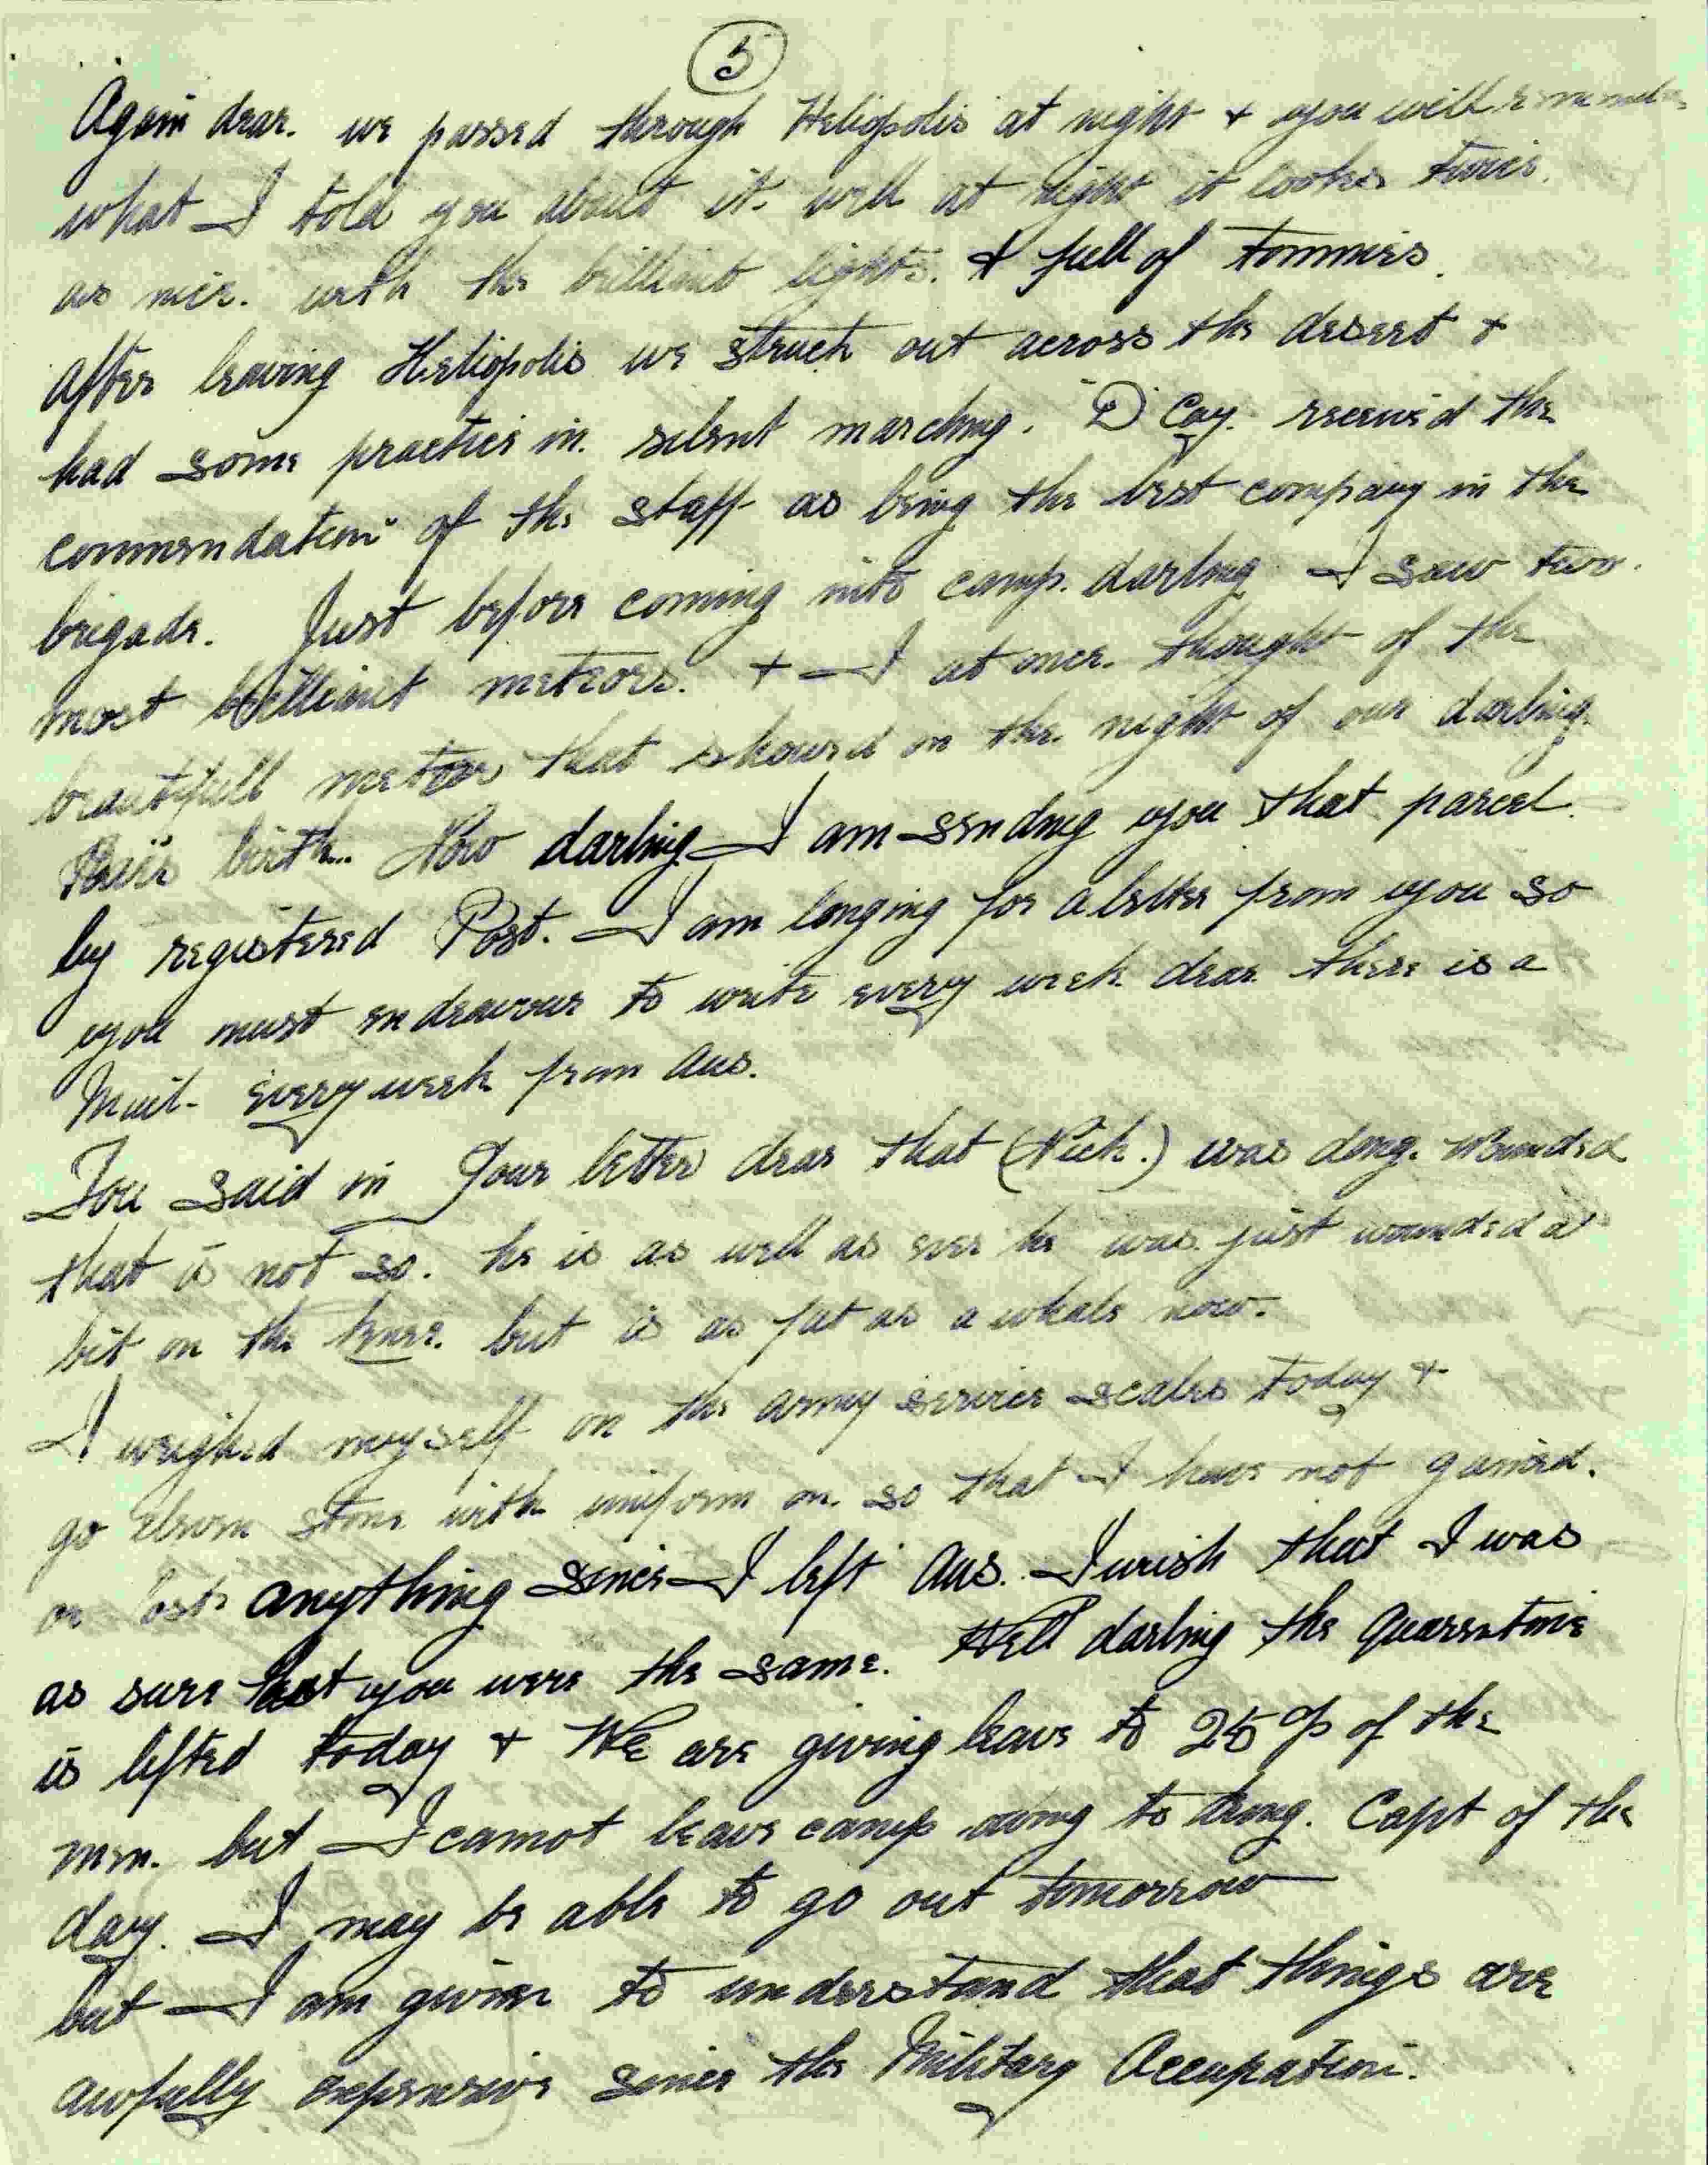 5
Again dear. we passed through Heliopolis at night + you will remember
what I told you about it. well at night it looks twice.
as nice. with the brilliant lights. + full of Tommies.
after leaving Heliopolis we struck out across the desert +
had some practice in. silent marching. "D" Coy. received the
commendation of the staff as being the best company in the
brigade. Just before coming into camp. darling I saw two.
most brilliant meteors. + I at once. thought of the
beautifull meteor that showed on the. night of our darling
birth... Now darling I am sending you that parcel.
by registered Post. I am longing for a letter from you so
you must endeavour to write every week dear there is a
Mail- every week from Aus.
You said in Your letter dear that (Nick.) was dang. wounded
that is not so. he is as well as ever he was just wounded a
bit on the knee. but is as fat as a whale now.
I weighed myself on the army service scales today +
go eleven stone with uniform on. so that I have not gained.
or lost anything since I left Aus. I wish that I was
as sure that you were the same. Well darling the Quarentine
is lifted today + We are giving leave to 25 % of the
men. but I cannot leave camp owing to being. Capt of the
day. I may be able to go out tomorrow
but I am given to understand that things are
awfully expensive since the Military Occupation.